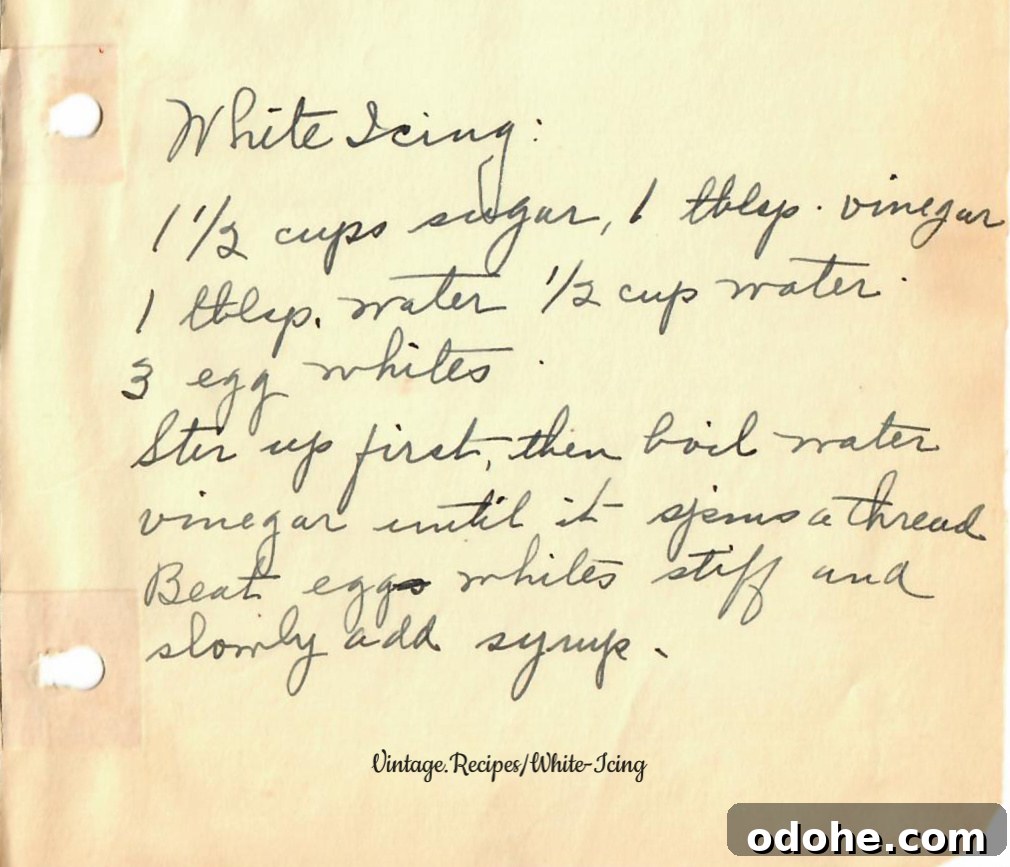 White Icing:
1 1/2 cups sugar, 1 tblsp. vinegar
1 tblsp. water 1/2 cup water.
3 egg whites.
Stir up first, then boil water
vinegar until it spins a thread
Beat eggs whites stiff and
slowly add syrup.
Vintage.Recipes/White-Icing
odohe.com